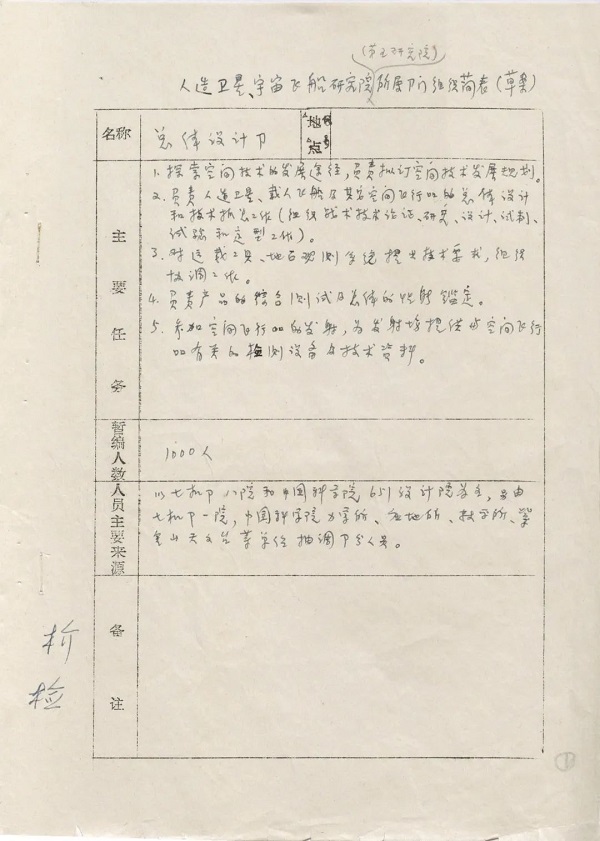 (第五研究院)
人造卫星、宇宙飞船研究院所属卩门组织简表(草案)
名称
总体设计卩
地点
代号
主要任务
1. 探索空间技术的发展途径，负责拟订空间技术发展规划。
2. 负责人造卫星、载人飞船及其它空间飞行器的总体设计
和技术抓总工作(组织战术技术论证、研究、设计、试制、
试验和定型工作)。
3. 对运载工具、地面观测系统提出技术要求，组织
协调工作。
4. 负责产品的综合测试及总体的性能鉴定。
5. 参加空间飞行器的发射，为发射场提供与空间飞行
器有关的检测设备与技术资料。
暂编人数
1000人
人员主要来源
以七机卩八院和中国科学院651设计院为主，另由
七机卩一院，中国科学院力学所、应地所、数学所、紫
金山天文台等单位抽调卩分人员。
备注
析
检
1